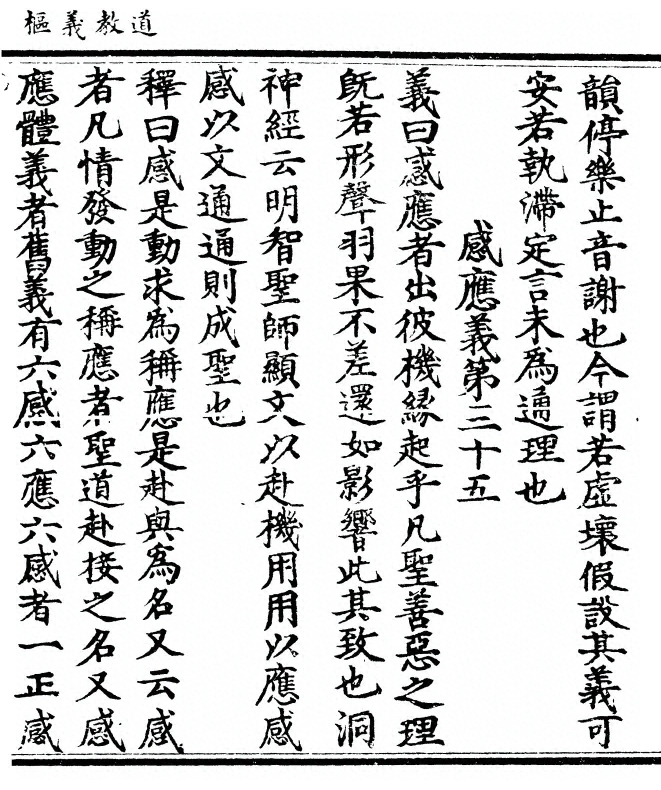 道教義樞
韻停樂止音謝也今謂若虛壞假設其義可
安若執滯定言未爲通理也
感應義第三十五
義曰感應者出彼機緣起乎凡聖善惡之理
旣若形聲羽果不差還如影響此其致也洞
神經云明智聖師顯文以赴機用用以應感
感以文通通則成聖也
釋曰感是動求爲稱應是赴與爲名又云感
者凡情發動之稱應者聖道赴接之名又感
應體義者舊義有六感六應六感者一正感